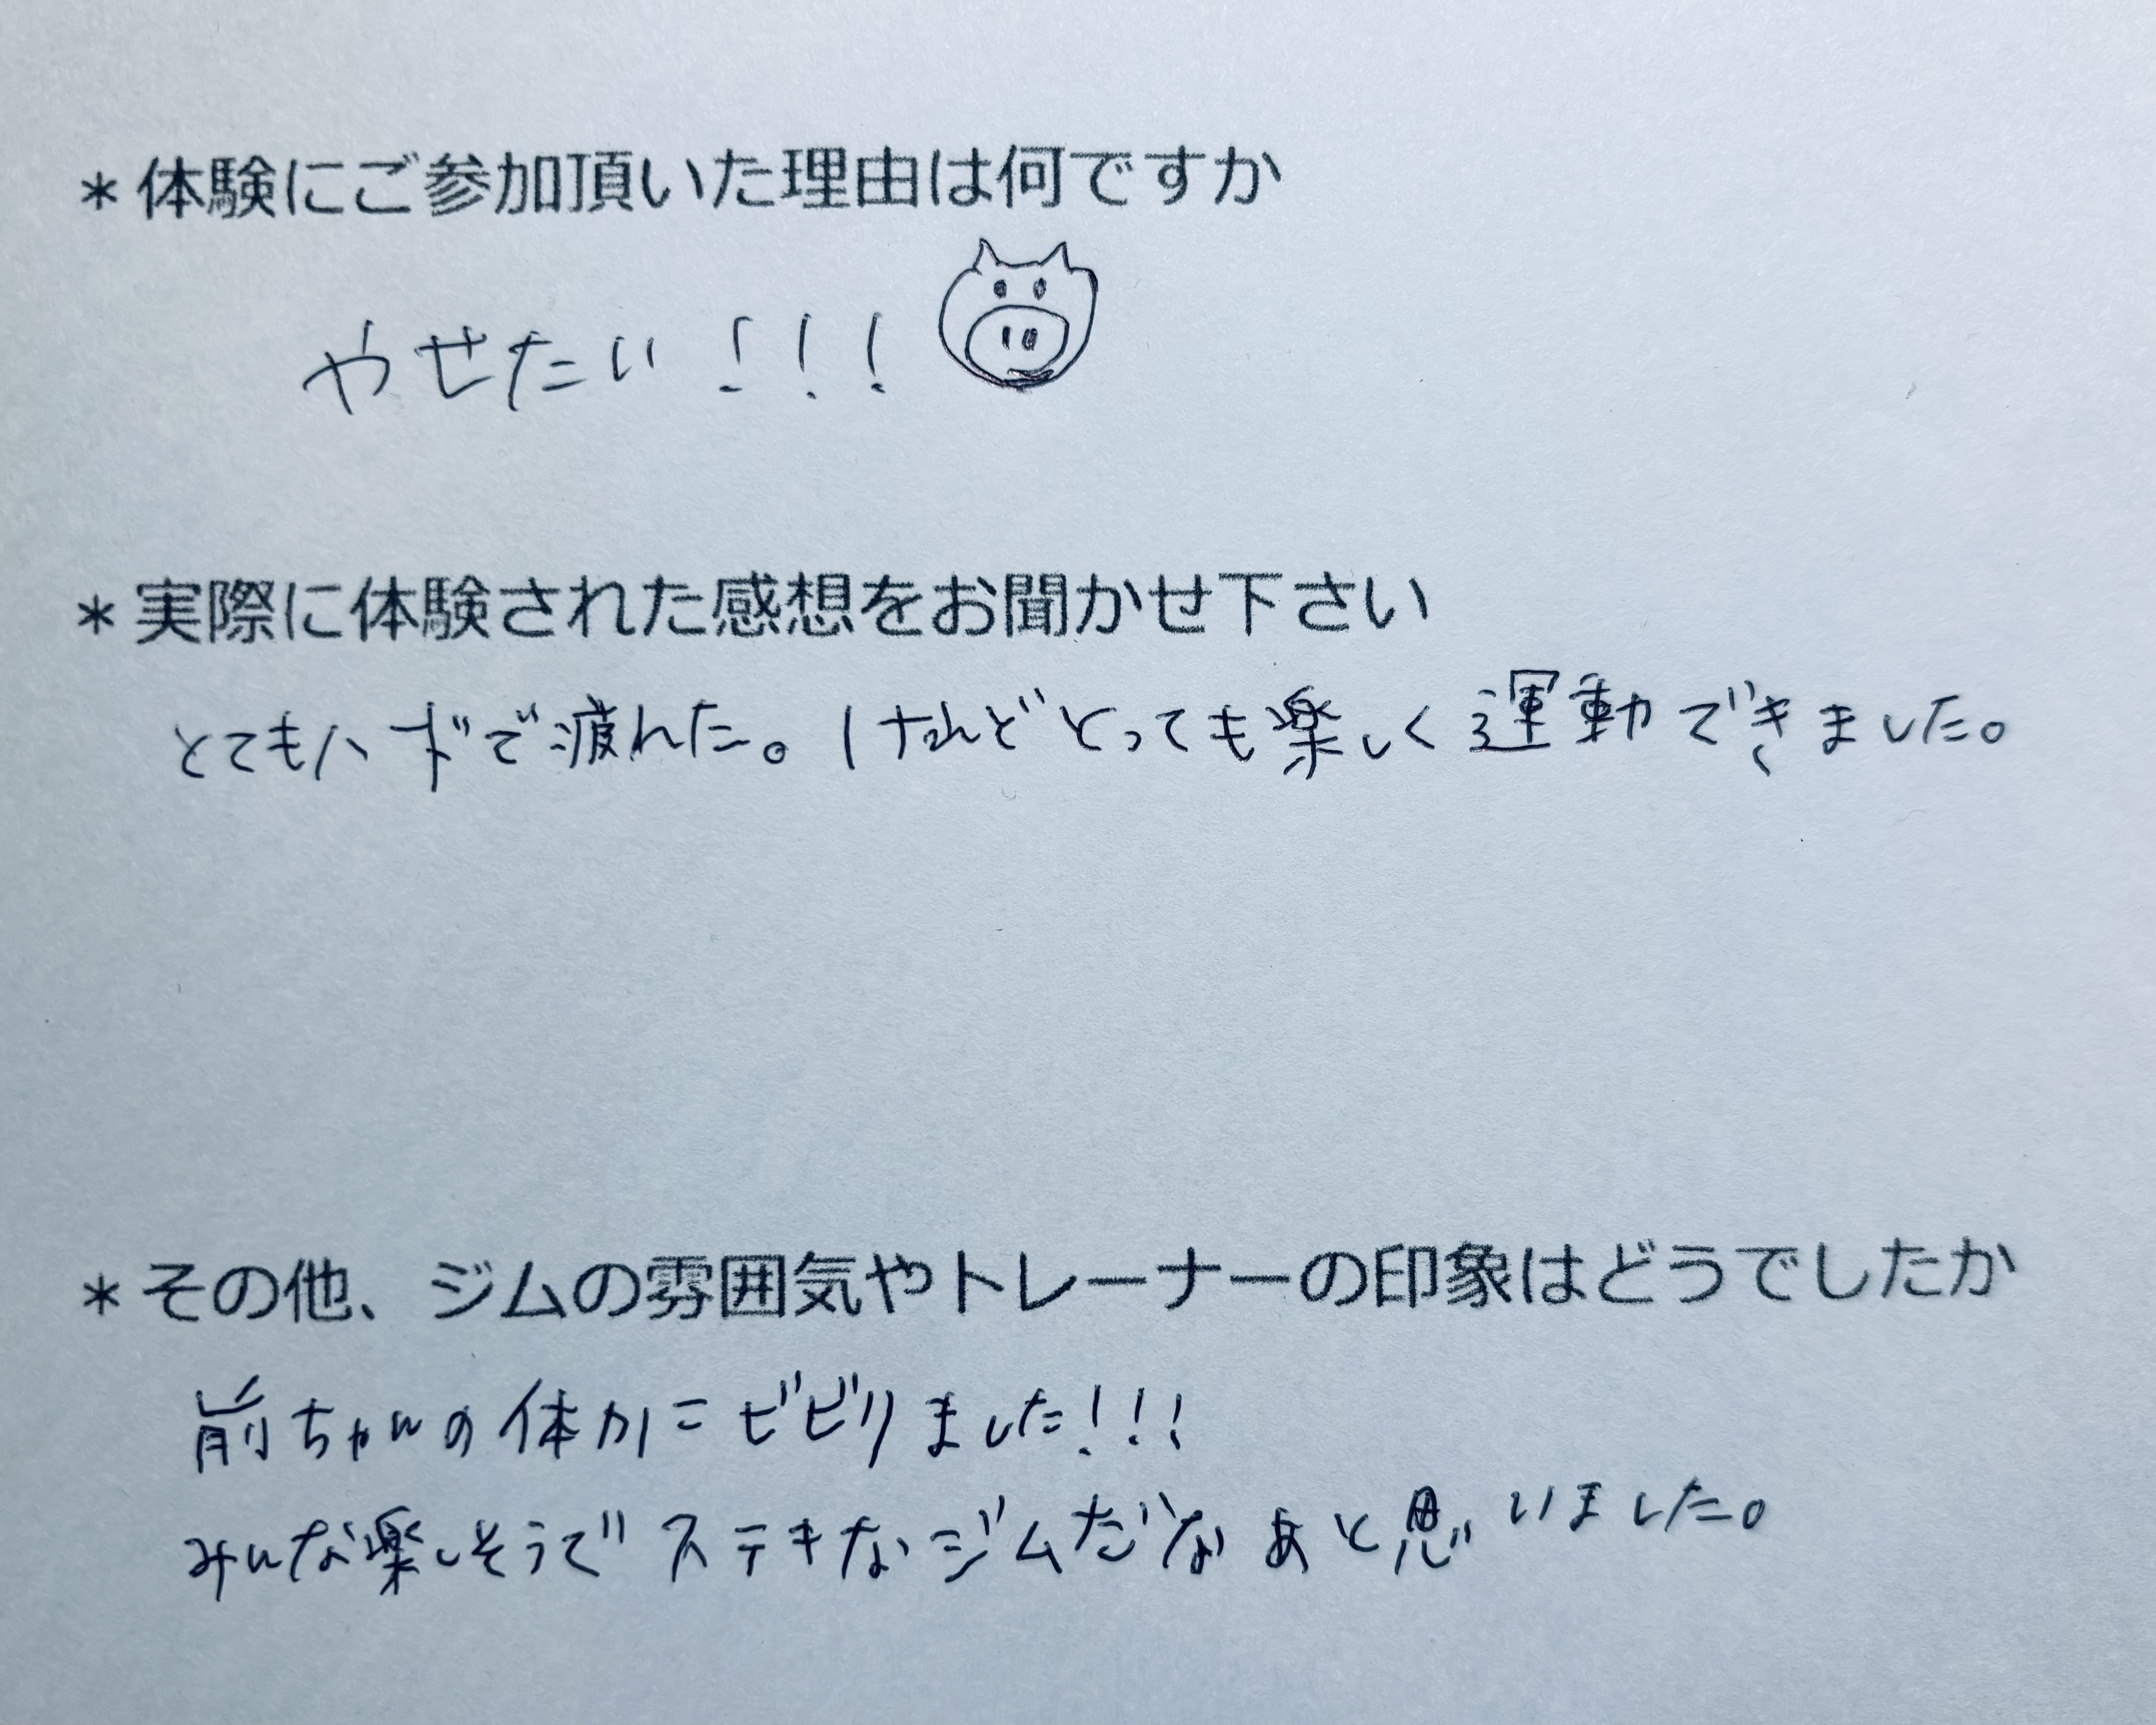 *体験にご参加頂いた理由は何ですか
やせたい!!!
*実際に体験された感想をお聞かせ下さい
とてもハードで疲れた。けれどとっても楽しく運動できました。
*その他、ジムの雰囲気やトレーナーの印象はどうでしたか
前ちゃんの体力にビビりました!!!
みんな楽しそうでステキなジムだなあと思いました。